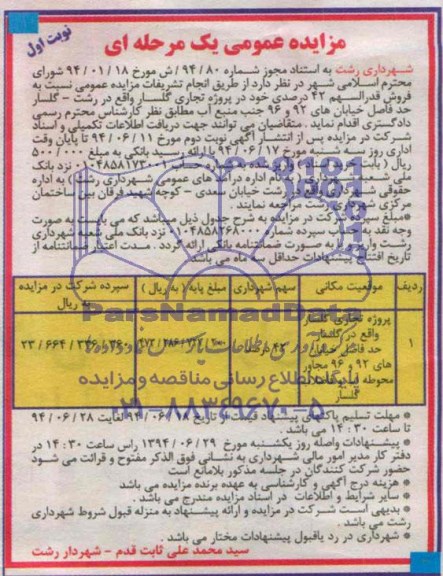 نوبت اول
مزایده عمومی یک مرحله ای
شهرداری رشت به استناد مجوز شماره ۹۴/۸۰/ش مورخ ۹۴/۰۱/۱۸ شورای
محترم اسلامی شهر در نظر دارد از طریق انجام تشریفات مزایده عمومی نسبت به
فروش قدرالسهم ۴۲ درصدی خود در پروژه تجاری گلسار واقع در رشت - گلسار
حد فاصل خیابان های ۹۲ و ۹۶ جنب منبع آب مطابق نظر کارشناس محترم رسمی
دادگستری اقدام نماید. متقاضیان می توانند جهت دریافت اطلاعات تکمیلی و اسناد
شرکت در مزایده پس از انتشار آگهی نوبت دوم مورخ ۹۴/۰۶/۱۱ تا پایان وقت
اداری روز سه شنبه مورخ ۹۴/۰۶/۱۷ با ارائه بانکی به مبلغ ۵۰۰/۰۰۰
ریال نزد بانک
ملی شعبه اداره درآمد های عمومی شهرداری رشت) به اداره
حقوقی رشت خیابان سعدی - کوچه شهید فرقان بین ساختمان
مرکزی مراجعه نمایند
*مبلغ سپرده شرکت در مزایده به شرح جدول ذیل میباشد که می بایست به صورت
وجه نقد به حساب سپرده شماره ۰۱۰۴۸۵۸۲۶۸۰۰۰ نزد بانک ملی شعبه شهرداری
رشت واریز و یا به صورت ضمانتنامه بانکی ارائه گردد. مدت اعتبار ضمانتنامه از
تاریخ افتتاح پیشنهادات حداقل سه ماه می باشد
ردیف موقعیت مکانی سهم شهرداری مبلغ پایه (به ریال) سپرده شرکت در مزایده به ریال
۱ پروژه تجاری گلسار واقع در گلسار حد فاصل خیابان های ۹۲ و ۹۶ مجاور محوطه گلسار ۴۲ درصد
ParsNamadData
پایگاه اطلاع رسانی مناقصه و مزایده
۰۲۱-۸۸۳۴۹۶۷۰-۵
* مهلت تسلیم پاکتهای پیشنهاد قیمت از تاریخ لغایت ۹۴/۰۶/۲۸
تا ساعت ۱۴:۳۰ می باشد.
* پیشنهادات واصله روز یکشنبه مورخ ۱۳۹۴/۰۶/۲۹ راس ساعت ۱۴:۳۰ در
دفتر کار مدیر امور مالی شهرداری به نشانی فوق الذکر مفتوح و قرائت می شود
حضور شرکت کنندگان در جلسه مذکور بلامانع است
* هزینه درج آگهی و کارشناسی به عهده برنده مزایده می باشد
* سایر شرایط و اطلاعات در اسناد مزایده مندرج می باشد.
* بدیهی است شرکت در مزایده و ارائه پیشنهاد به منزله قبول شروط شهرداری
رشت می باشد.
* شهرداری در رد یاقبول پیشنهادات مختار می باشد.
سید محمد علی ثابت قدم - شهردار رشت